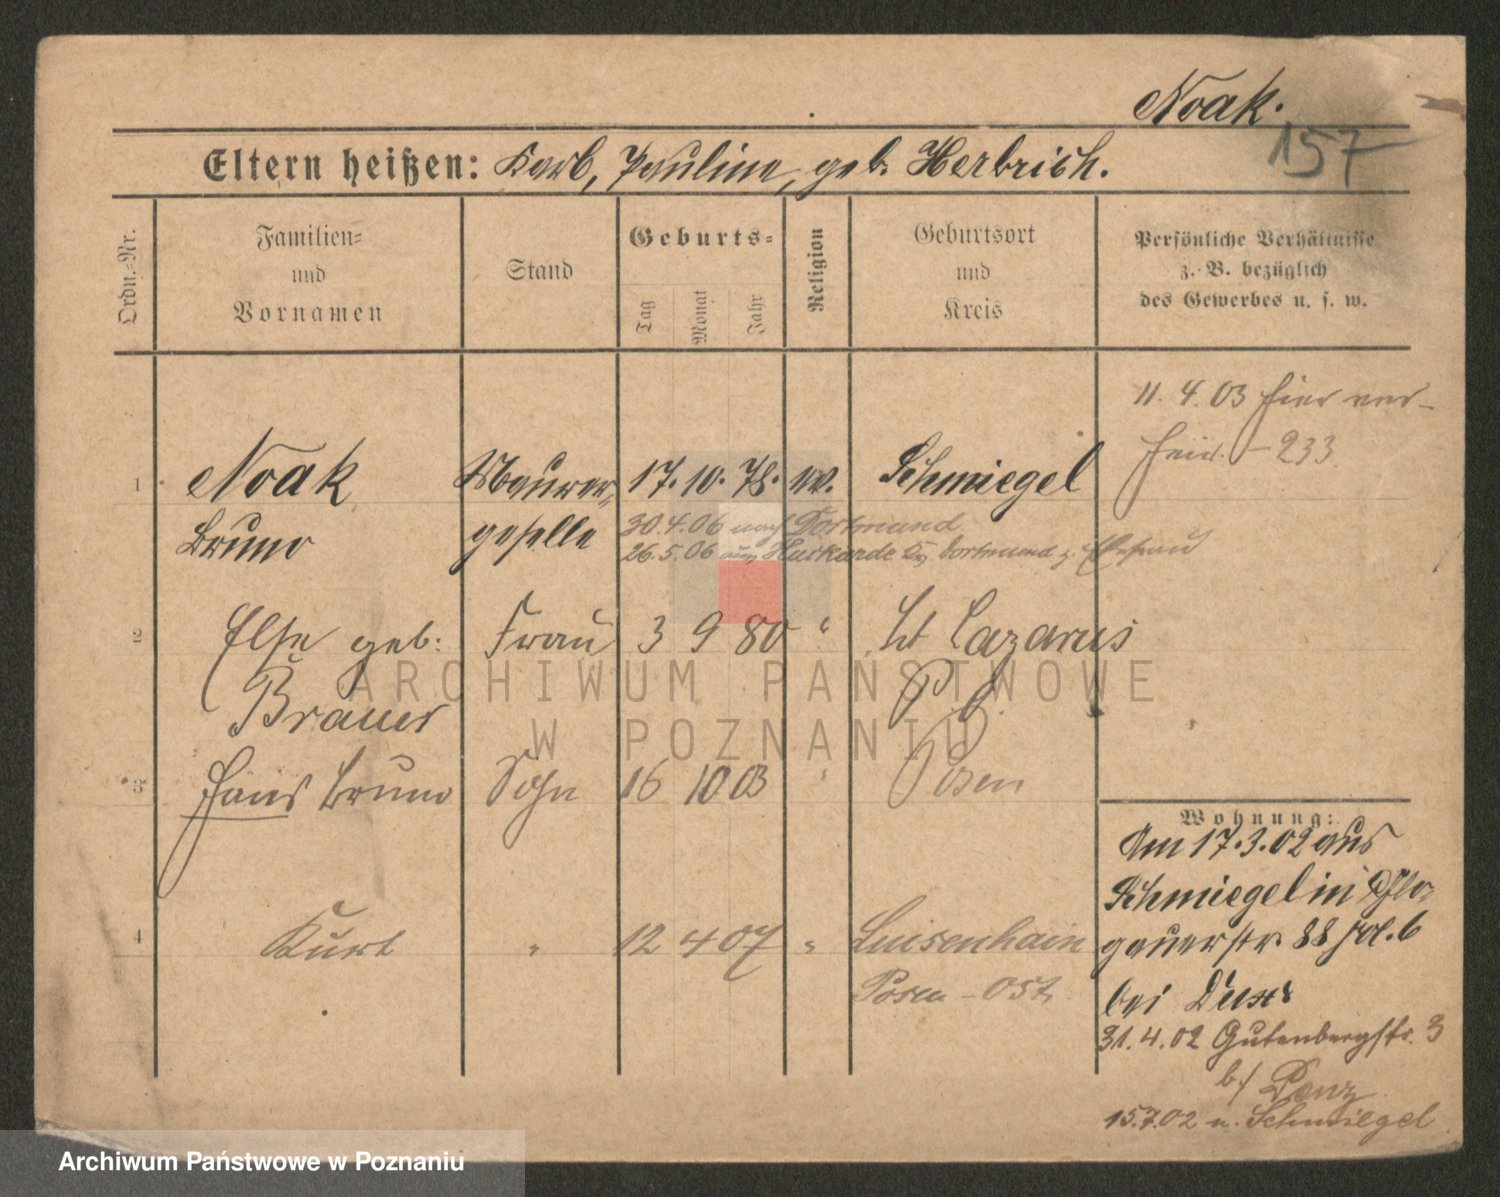 Noak.
157
Eltern heißen: Karl, Pauline, geb. Herbrich.
Ordn.-Nr.
Familien-
und
Vornamen
Stand
Geburts-
Tag
Monat
Jahr
Religion
Geburtsort
und
Kreis
Persönliche Verhältnisse
z. B. bezüglich
des Gewerbes u. s. w.
11. 4. 03 hier ver-
heir. - 233
1 Noak Maurer- 17. 10. 78. ev. Schmiegel
Bruno geselle
30.4.06 nach Dortmund
26.5.06 aus Huckarde Kr. Dortmund z. Ehefrau
2 Else geb: Frau 3 9 80 " St Lazarus
Brauer P. O.
3 Hans Bruno Sohn 16 10 03 " Posen
4 Kurt " 12 4 07 " Luisenhain
Posen - Ost
Wohnung:
Am 17.3.02 aus
Schmiegel in Glo-
gauerstr. 88 Hol. 6
bei
31.4.02 Gutenbergstr. 3
b/ Penz
15.7.02 n. Schmiegel
ARCHIWUM PAŃSTWOWE
W POZNANIU
Archiwum Państwowe w Poznaniu